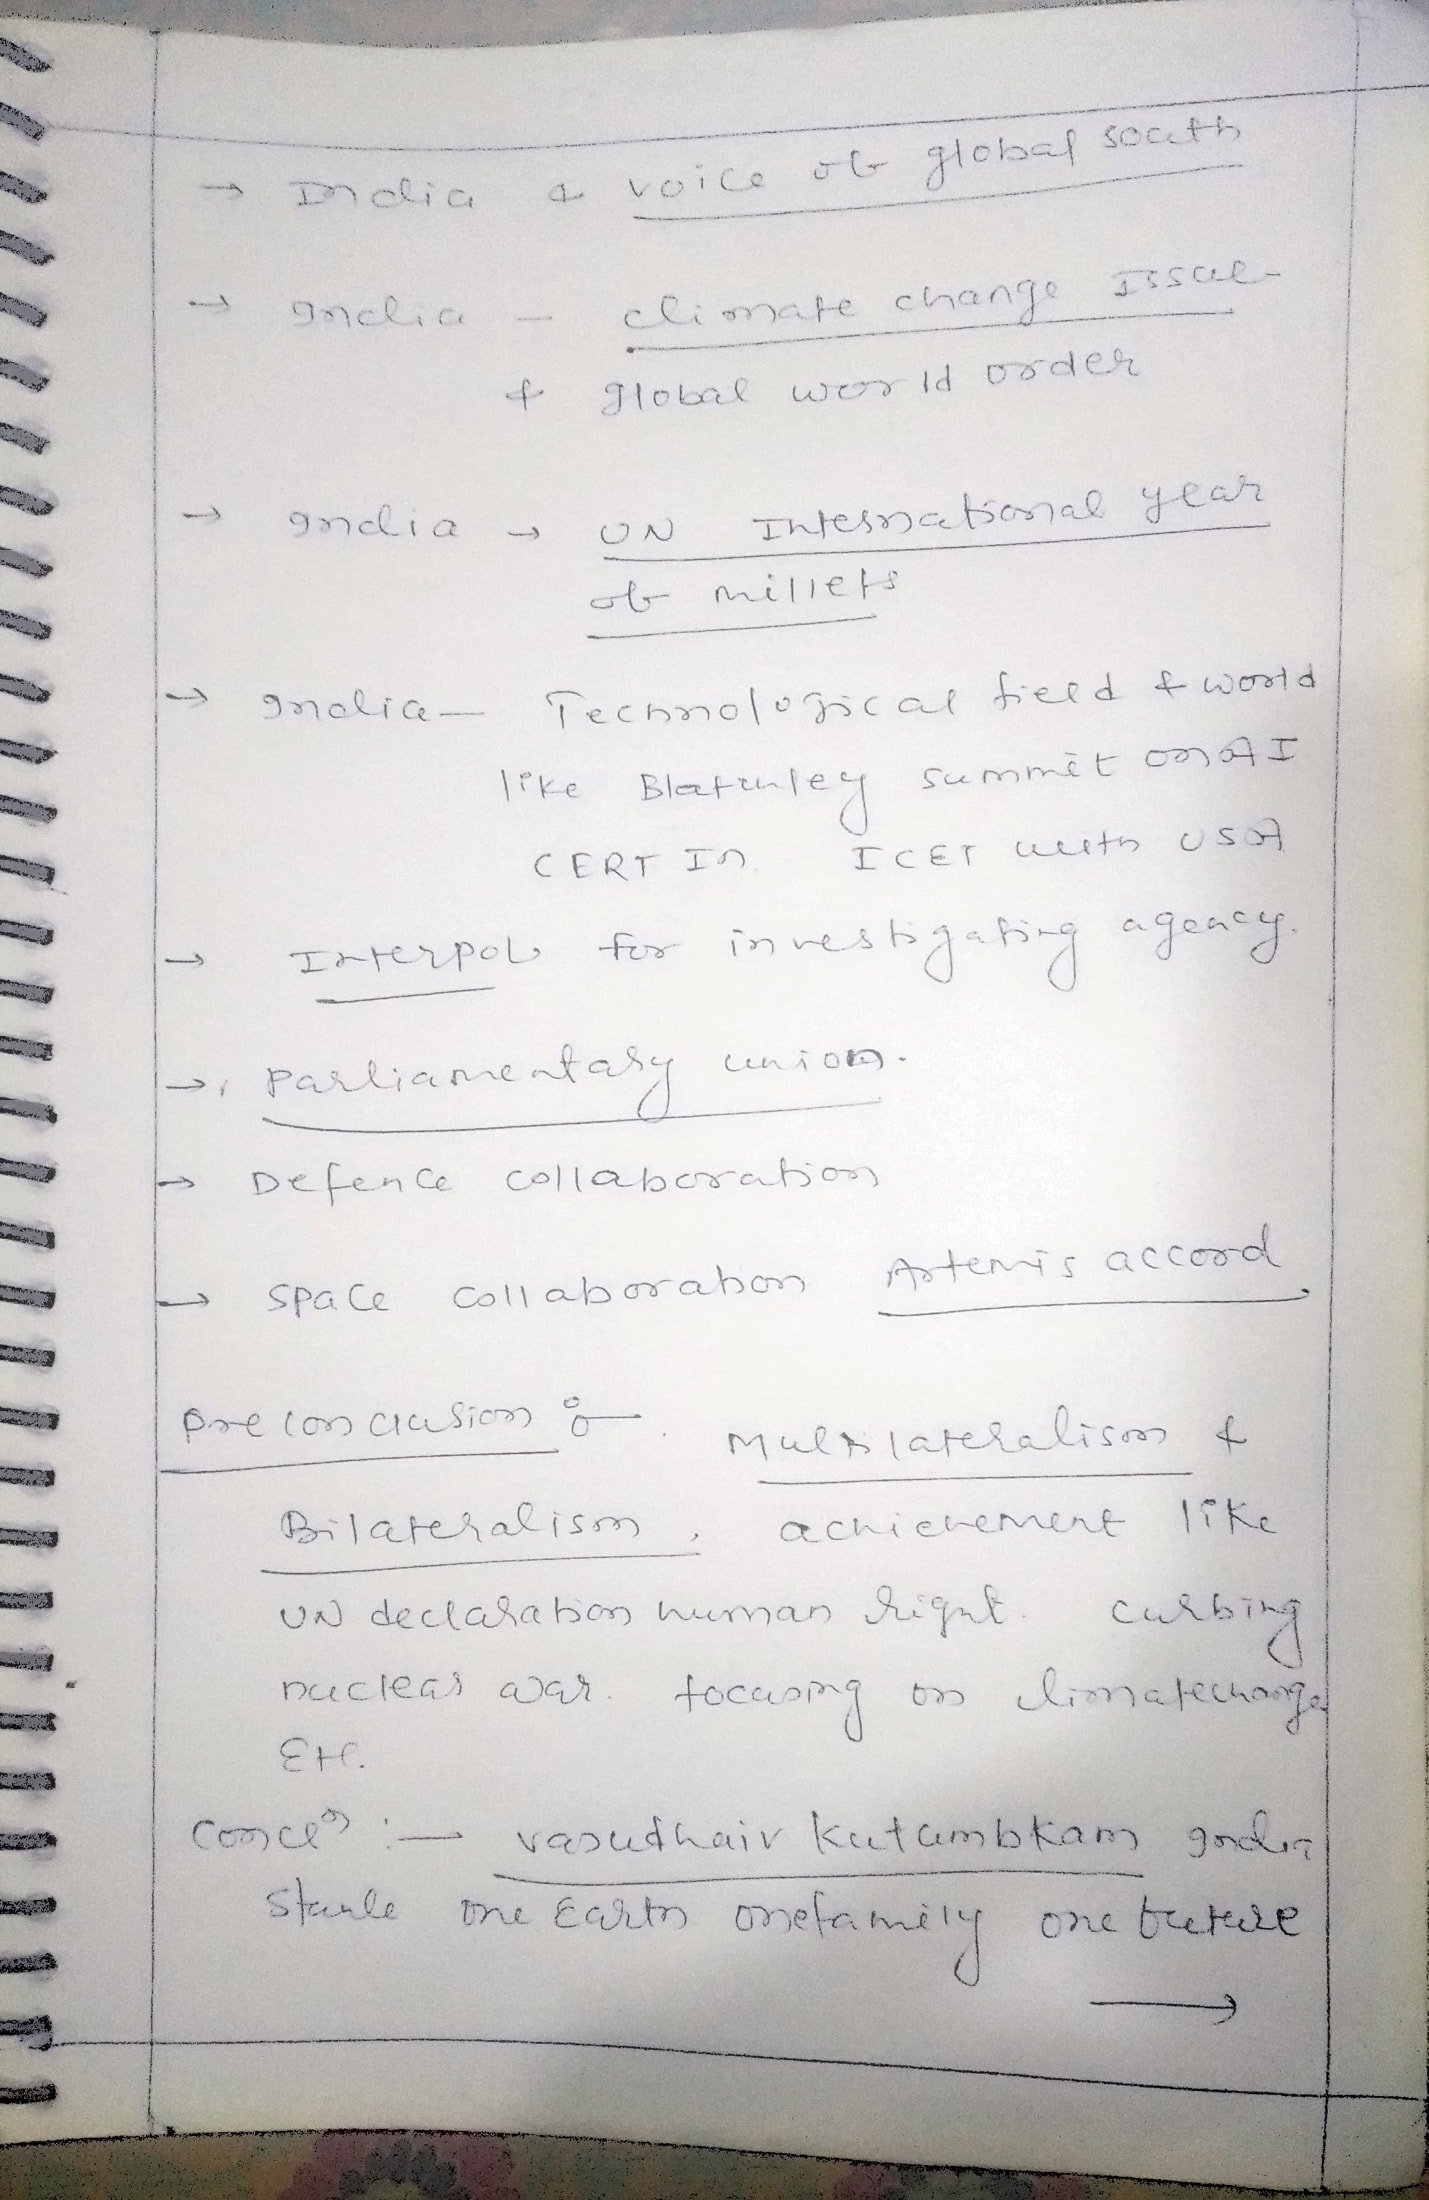 → India & voice of global south
→ India - climate change Issue
& global world order
→ India → UN International year
of millets
→ India - Technological field & world
like Bletchley summit on AI
CERT In ICET with USA
→ Interpol for investigating agency.
→ Parliamentary union.
→ Defence collaboration
→ Space collaboration Artemis accord
Preconclusion :- Multilateralism &
Bilateralism, achievement like
UN declaration human right. curbing
nuclear war. focusing on climatechange
Etc.
Concln :- vasudhaiv Kutumbkam India
one Earth onefamily one future
→